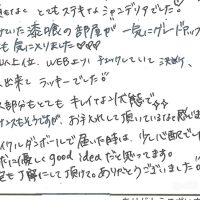 はなく とてもステキなシャンデリアでした!
いた漆喰の部屋が 一気にグレードアップ
も気に入りました♡♡♡
以上位、WEBより チェックしていて 決め、
出来て ラッキーでした!
部分もとても キレイな状態で
ンスもそうですが、お手入れして頂いているなと感じ
イクルダンボールで届いた時は、少し心配でした
ボに優しく good idea だと思ってます。
も丁寧にして頂けて、ありがとうございました!